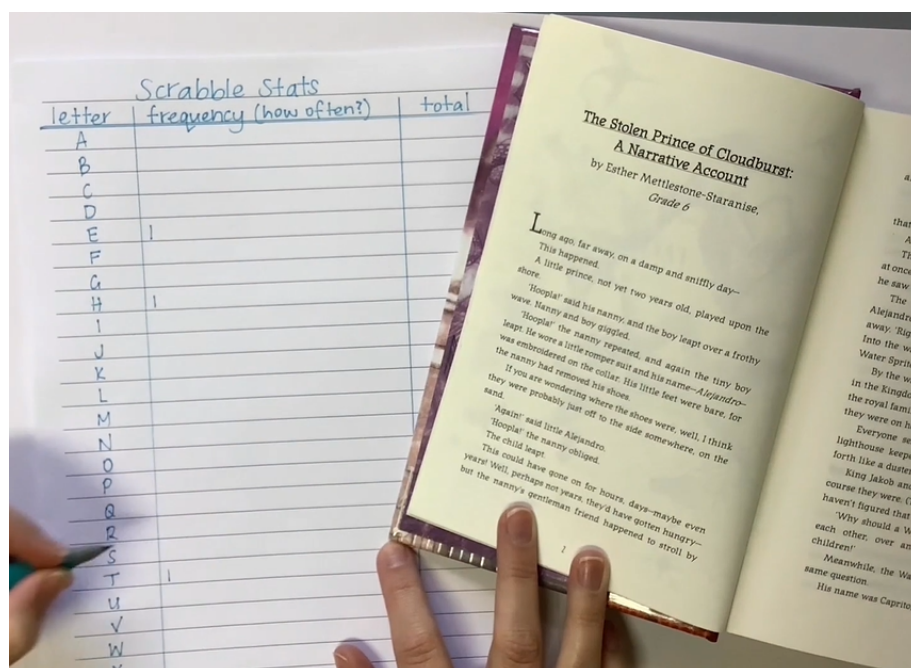 Scrabble Stats
letter frequency (how often?) total
A
B
C
D
E |
F
G
H |
I
J
K
L
M
N
O
P
Q
R
S
T |
U
V
W
The Stolen Prince of Cloudburst:
A Narrative Account
by Esther Mettlestone-Staranise,
Grade 6
Long ago, far away, on a damp and sniffly day—
This happened.
A little prince, not yet two years old, played upon the
shore.
'Hoopla!' said his nanny, and the boy leapt over a frothy
wave. Nanny and boy giggled.
'Hoopla!' the nanny repeated, and again the tiny boy
leapt. He wore a little romper suit and his name—Alejandro—
was embroidered on the collar. His little feet were bare, for
the nanny had removed his shoes.
If you are wondering where the shoes were, well, I think
they were probably just off to the side somewhere, on the
sand.
'Again!' said little Alejandro.
'Hoopla!' the nanny obliged.
The child leapt.
This could have gone on for hours, days—maybe even
years! Well, perhaps not years, they'd have gotten hungry—
but the nanny's gentleman friend happened to stroll by
1
that
A
Th
at once
he saw
The
Alejandro
away. 'Rig
Into the w
Water Sprit
By the w
in the Kingdo
the royal fami
they were on h
Everyone se
lighthouse keep
forth like a duste
King Jakob and
course they were. (
haven't figured that
'Why should a W
each other, over an
children!'
Meanwhile, the Wa
same question.
His name was Caprico